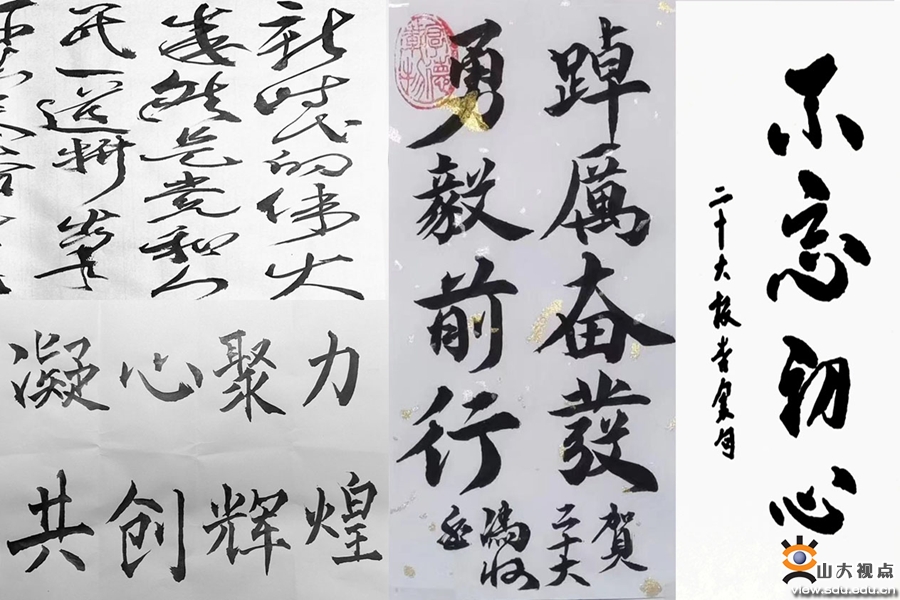 新时代的伟大
成就是党和人
民一道拼出
凝心聚力
共创辉煌
踔厲奋發
勇毅前行
賀
二十大
厚德載物
不忘初心
二十大报告
山大视点
view.sdu.edu.cn